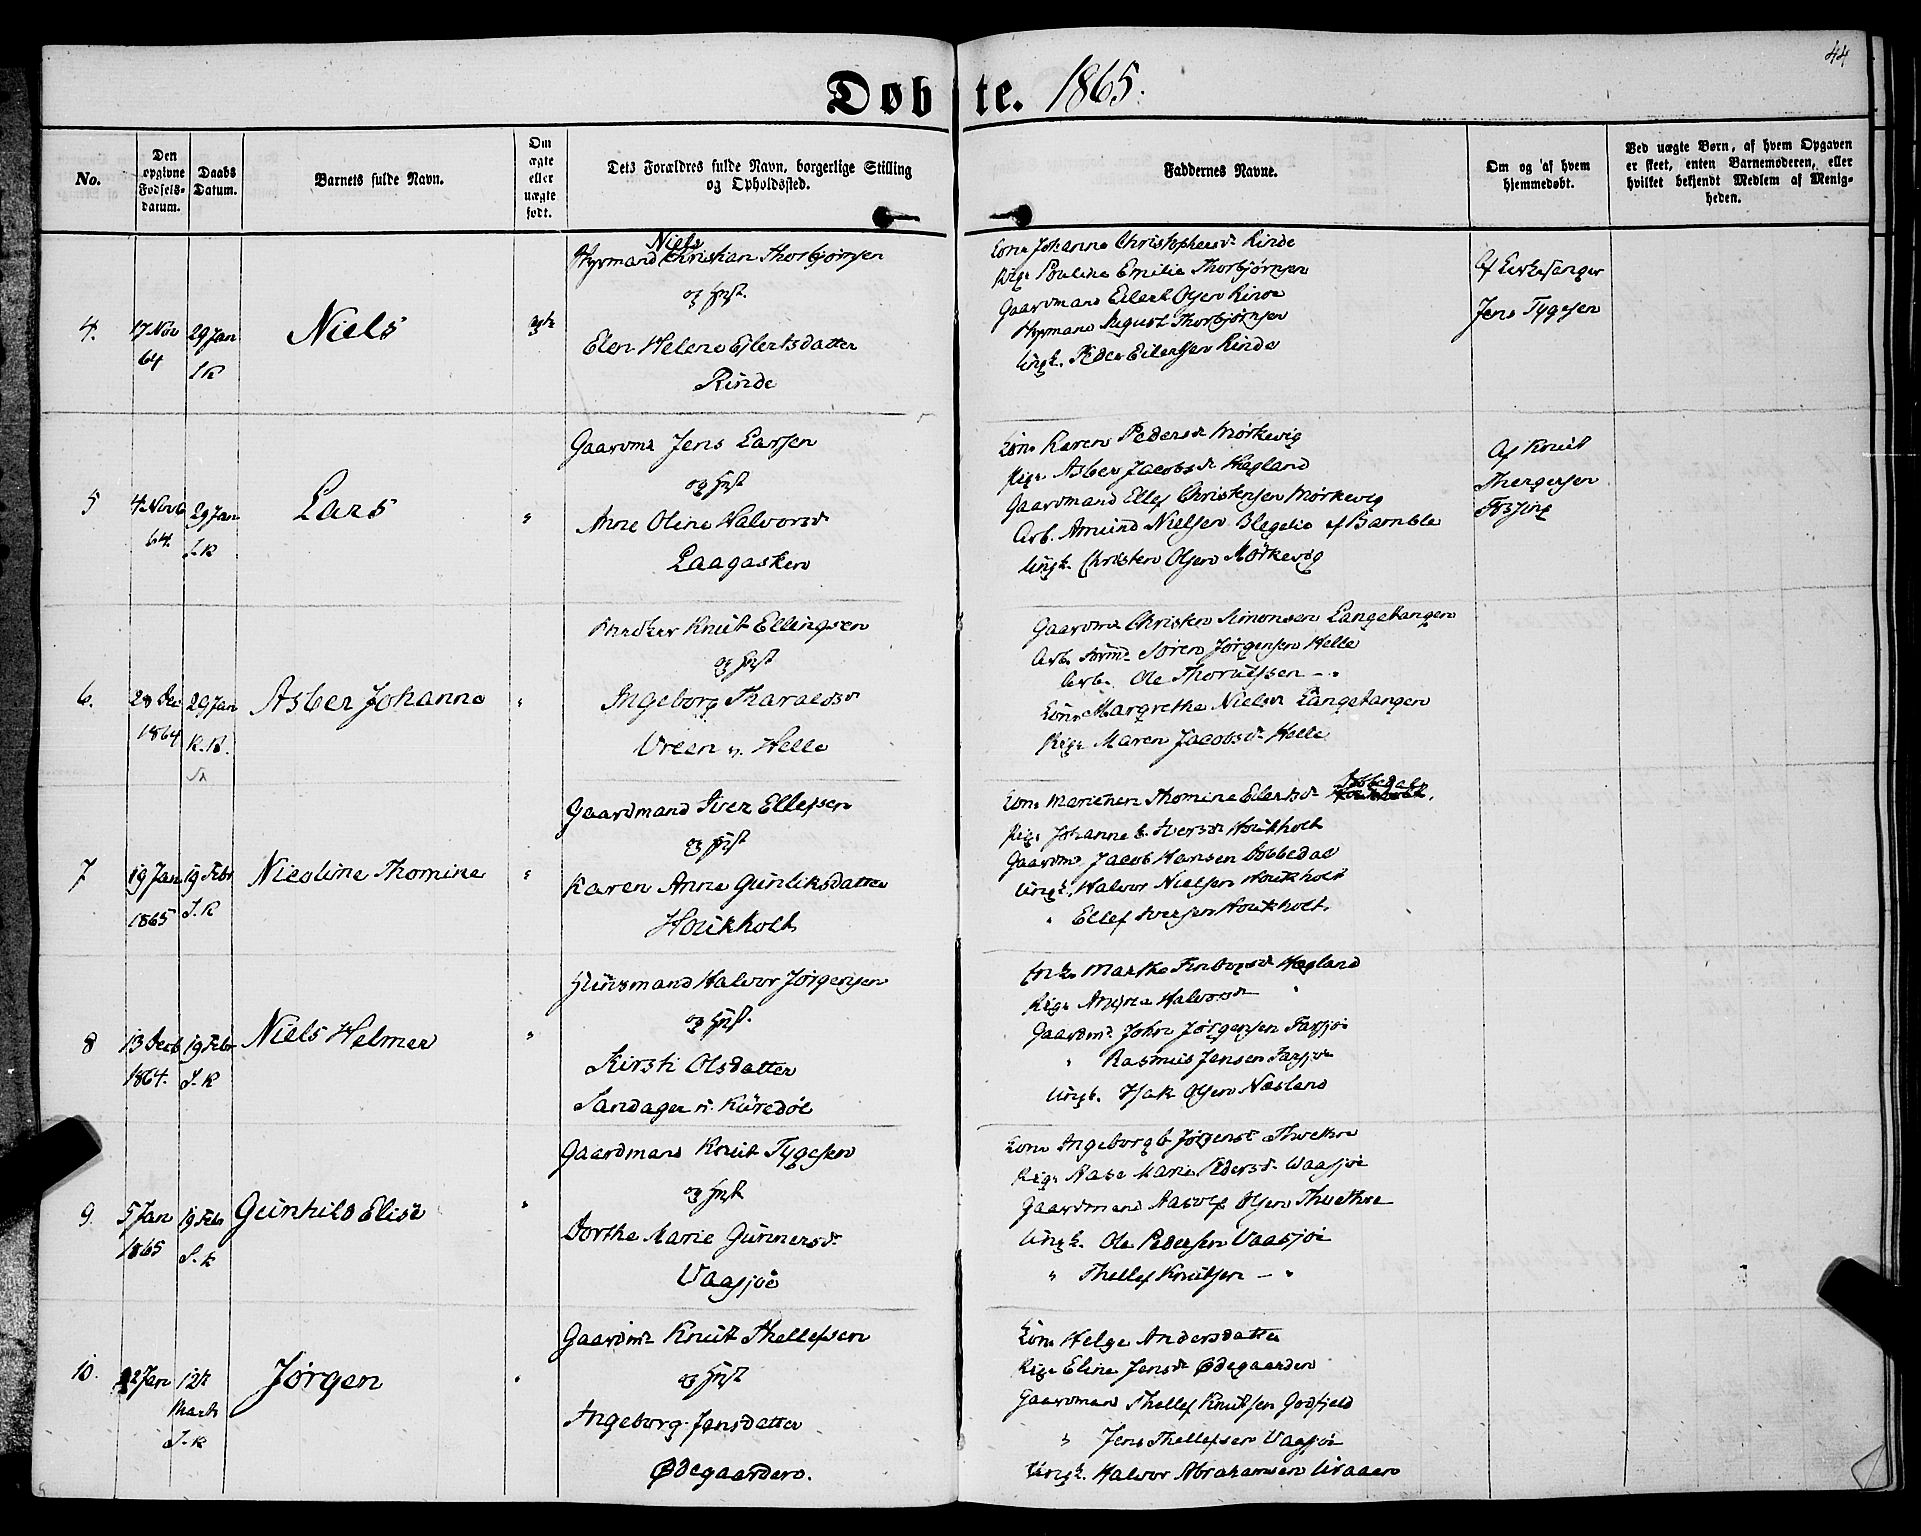 44
Døbte. 1865.
No.
Den opgivne Fødselsdatum.
Daabs Datum.
Barnets fulde Navn.
Om ægte eller uægte født.
Dets Forældres fulde Navn, borgerlige Stilling
og Opholdssted.
Faddernes Navne.
Om og af hvem
hjemmedøbt.
Ved uægte Børn, af hvem Opgaven
er skeet, enten Barnemoderen, eller
hvilket bekjendt Medlem af Menig-
heden.
4.
17 Nov
64
29 Jan
Niels
Niels
Styrmand Christian Thorbjørnsen
og Hust.
Elen Helene Eilertsdatter
Rinde
Kone Johanne Christophersd. Rinde
Pige Pouline Emilie Thorbjørnsen
Gaardmand Eilert Olsen Rinde
Styrmand August Thorbjørnsen
Ungk. Peder Eilertsen Rinde
Af Kirkesanger
Jens Tygesen
5
4 Novb
64.
29 Jan
S.K
Lars
"
Gaardmd Jens Larsen
og Hust
Anne Oline Halvorsd
Laagasken
Kone Karen Pedersd Mørkevig
Pige Asber Jacobsd Hagland
Gaardmand Ellef Christensen Mørkevig
Arb. Amund Nielsen af Bamble
Ungk. Christen Olsen Mørkevig
Af Knut
6.
28 Dec
1864
29 Jan
K.K.
Asber Johanne
"
Knut Ellingsen
og Hust
Ingeborg Tharaldsd
Vreen u. Helle
Gaardmd Christen Simonsen Langetangen
Arb. Søren Jørgensen Helle
Arb. Ole Thorulfsen — "
Kone Margrethe Nielsd Langetangen
Pige Maren Jacobsd Helle
7
19 Jan
1865
19 Febr
S.K
Nicoline Thomine
"
Gaardmand Iver Ellefsen
og Hust
Karen Anne Gunliksdatter
Houkholt
Kone Marichen Thomine Eilertsd Dobbedal
Pige Johanne L. Iversd Houkholt
Gaardmd Jacob Hansen Dobbedal
Ungk. Halvor Nielsen Houkholt
" Ellef Iversen Houkholt.
8
13 Decb
1864.
19 Febr
S.K
Niels Helmer
"
Huusmand Halvor Jørgensen
og Hust.
Kirsti Olsdatter
Sandager u. Kuredøl
Enke Marthe Hagland
Pige Halvorsd "
Gaardmd John Jørgensen Farsjøe
" Rasmus Jensen Farsjøe
Ungk. Isak Olsen Næsland
9.
5 Jan
1865
19 Febr
S.K
Gunhild Elise
"
Gaardmand Knut Tygesen
og Hust
Dorthe Marie Gunnersd.
Vaasjøe
Kone Ingeborg Jørgensd Thvethre
Pige Marie Pedersd Vaasjøe
Gaardmand Aasolf Olsen Thvethre
Ungk. Ole Pedersen Vaasjøe
" Thellef Knutsen — "
10.
22 Jan
12te
Marts
S.K
Jørgen
"
Gaardmd Knut Thellefsen
og Hust
Ingeborg Jensdatter
Ødegaarden.
Kone Helge Andersdatter
Pige Eline Jensd Ødegaarden
Gaardmand Thellef Knutsen Godfjeld
" Jens Thellefsen Vaasjøe
Ungk. Halvor Abrahamsen Uraaen